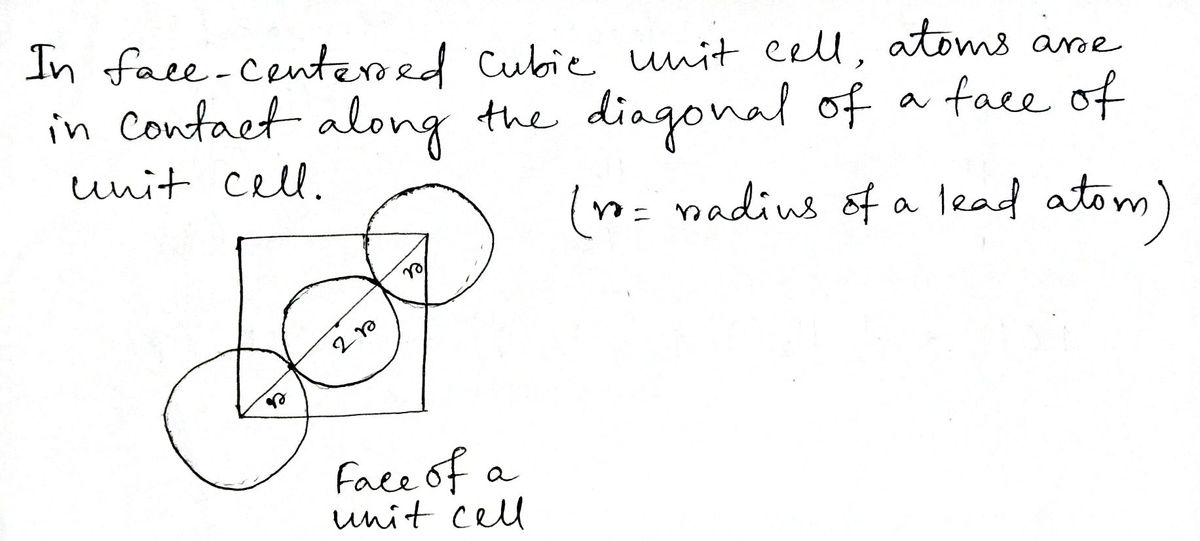 In face-centered cubic unit cell, atoms are
in contact along the diagonal of a face of
unit cell.
(r = radius of a lead atom)
r
2r
r
Face of a
unit cell